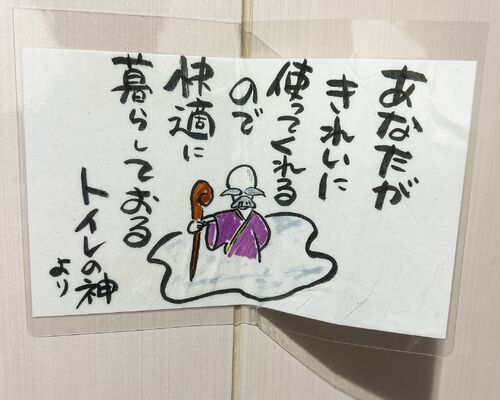 あなたが
きれいに
使ってくれる
ので
快適に
暮らしておる
トイレの神
より